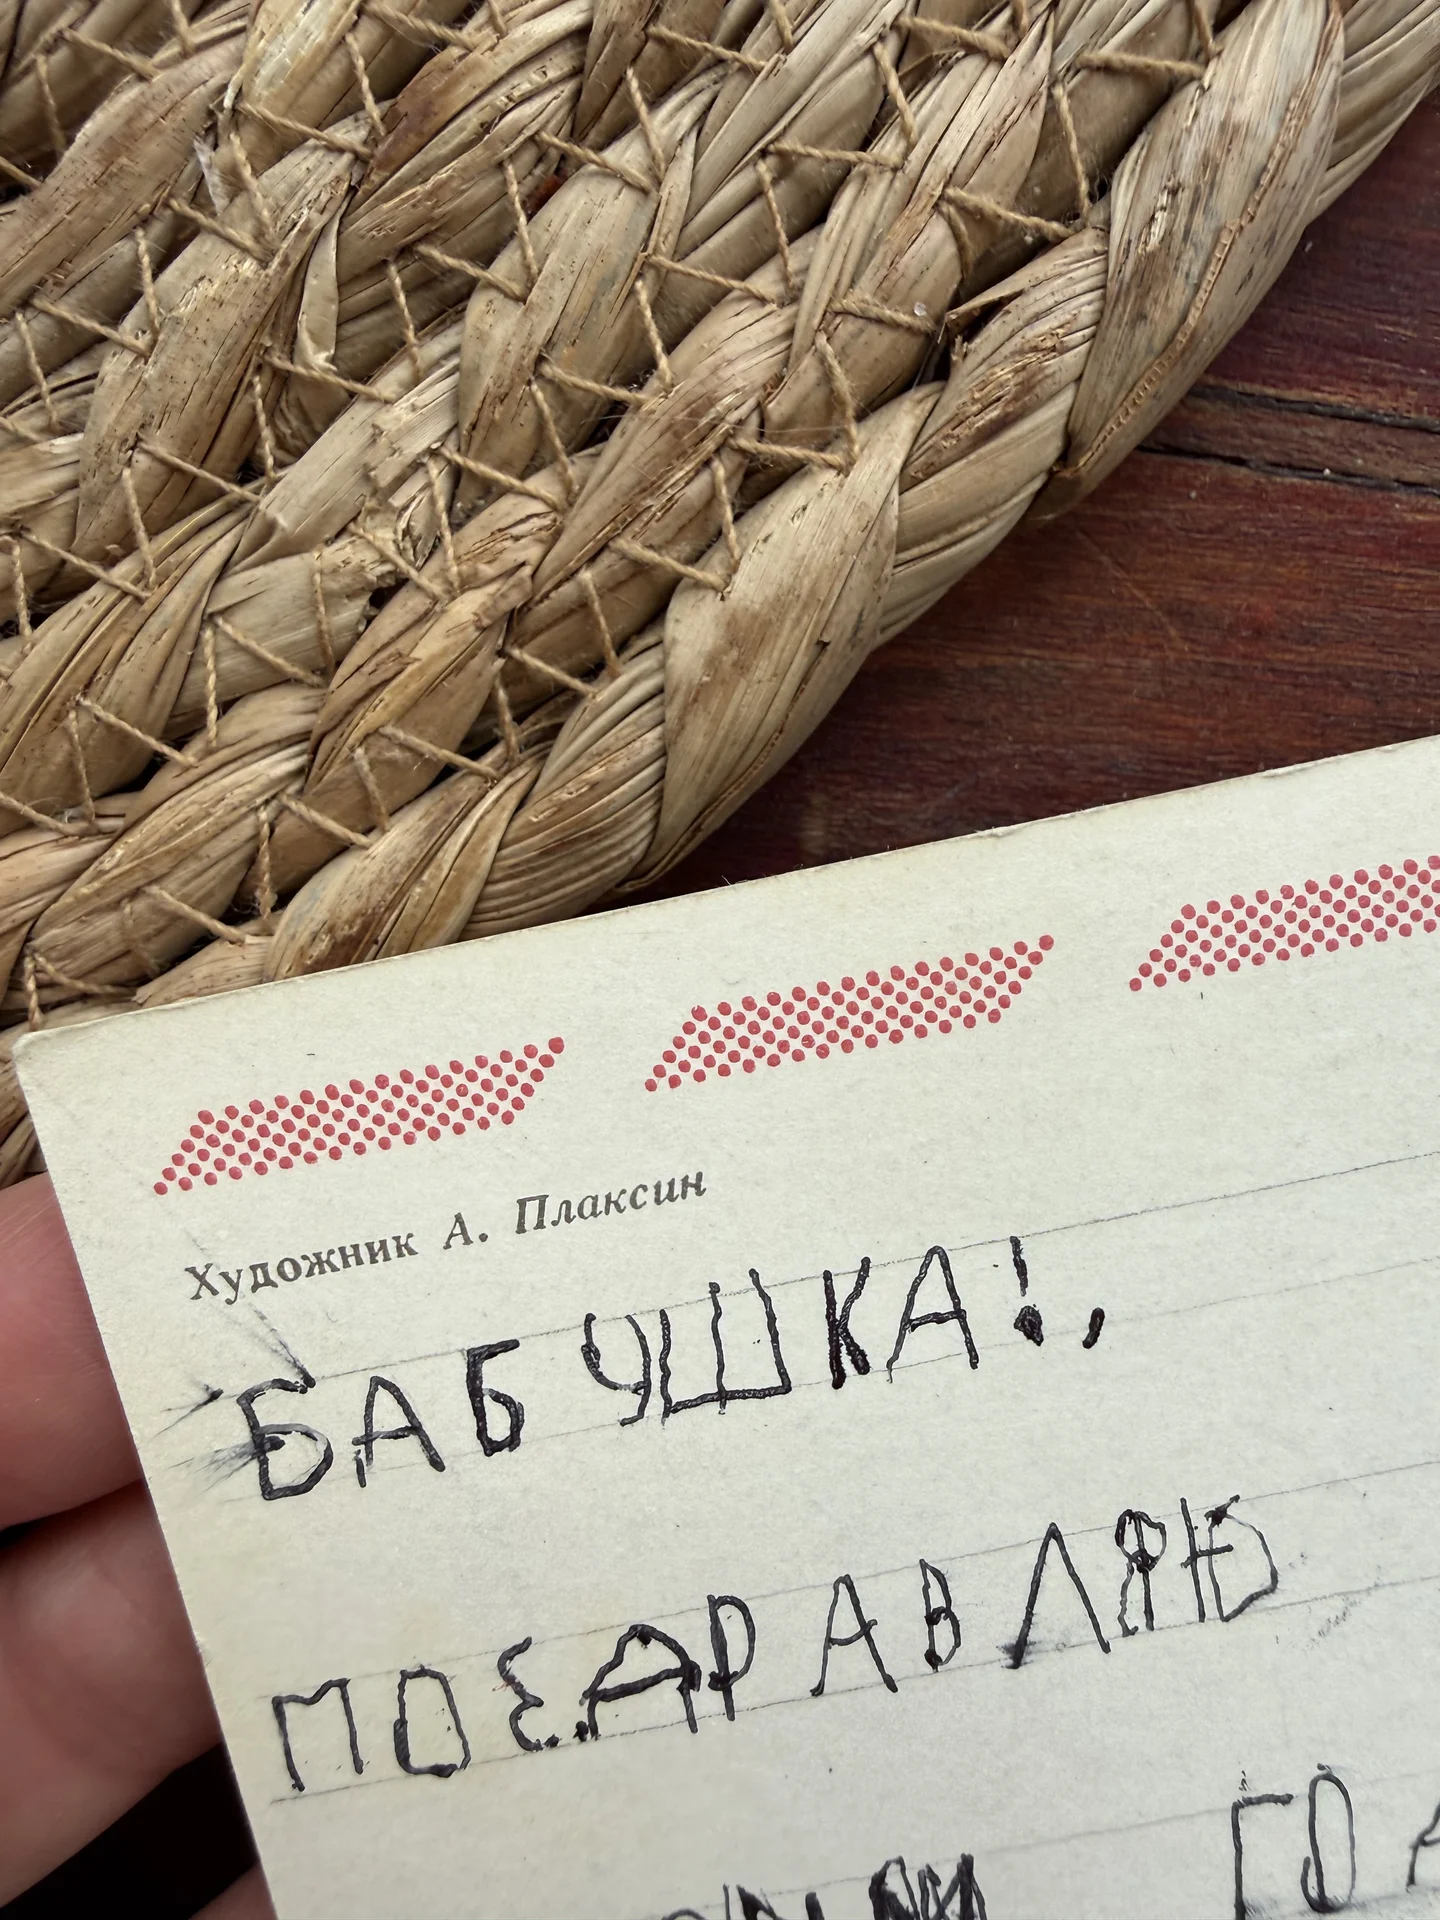 Художник А. Плаксин
БАБУШКА!,
ПОЗДРАВЛЯЮ